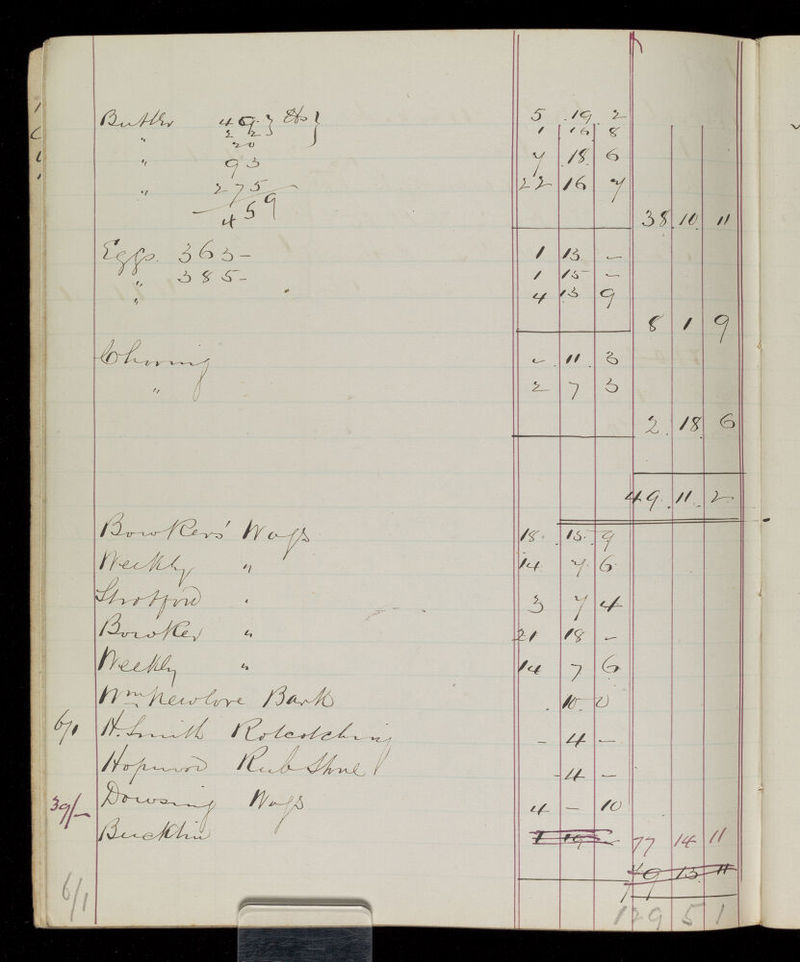 Butter 49 } lbs } 5 19 2
" 22 } 1 16 8
20
" 93 7 18 6
" 275 22 16 7
459 38 10 11
Eggs. 363- 1 13 -
" 385- 1 15 -
" 4 13 9
8 1 9
- 11 3
" 2 7 3
2 18 6
49 11 2
Bowkers' Wags 18 15 9
Weekly " 14 7 6
Stratford 3 7 4
Bowker " 21 18 -
Weekly " 14 7 6
Wm Newlove Bark 10 0
6/1 H. Smith Rotcotching - 4 -
Hopwood Rub Stone - 4 -
39/- Dowsing Wags 4 - 10
1 19 77 14 11
49 13 11
6/1 129 5 1